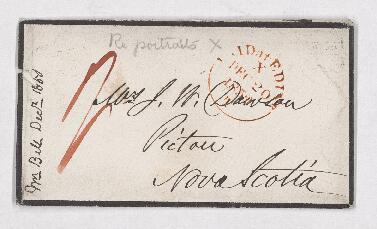 Re portraits X
PAID AT EDIN
X
DEC 20
Mrs J. W. Dawson
Pictou
Nova Scotia
Mrs Bell Decr